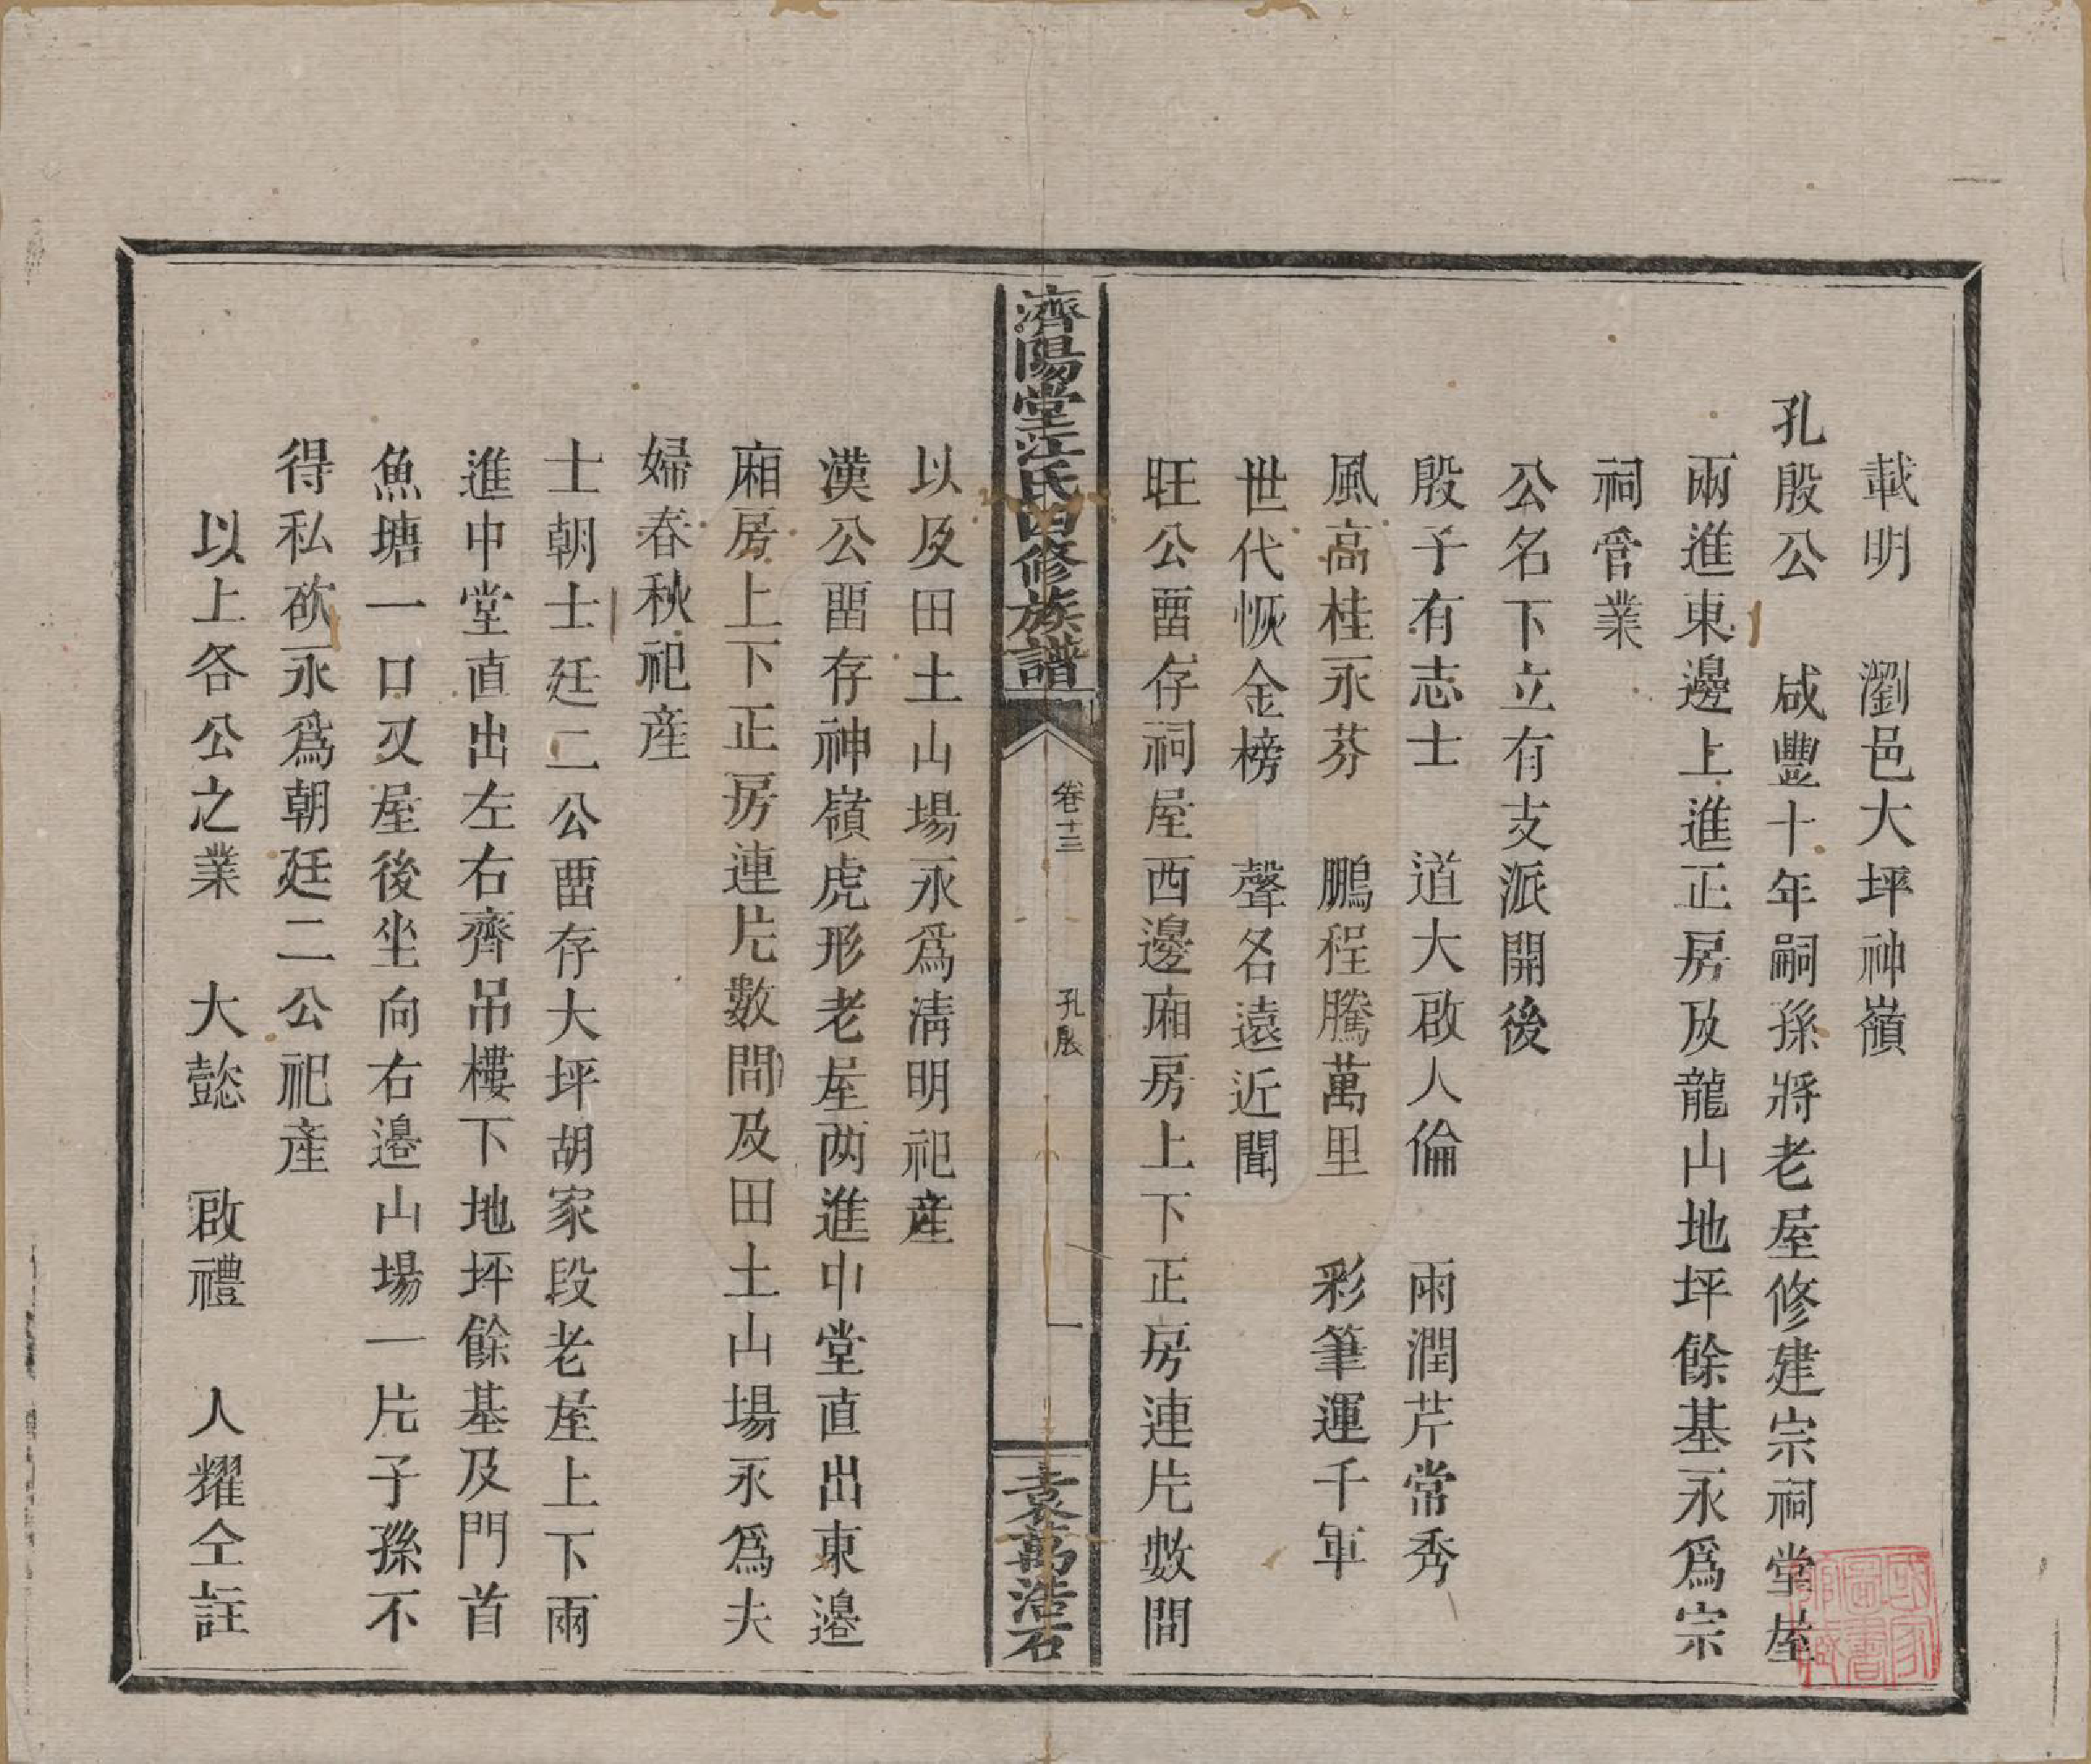 載明　瀏邑大坪神嶺
孔殷公　咸豐十年嗣孫將老屋修建宗祠堂屋
兩進東邊上進正房及龍山地坪餘基永爲宗
祠管業
公名下立有支派開後
殷子有志士　道大啟人倫　雨潤芹常秀
風高桂永芬　鵬程騰萬里　彩筆運千軍
世代恢金榜　聲名遠近聞
旺公畱存祠屋西邊廂房上下正房連片數間
濟陽堂江氏四修族譜
卷十三
孔殷
一
袁萬浩石
以及田土山場永爲淸明祀產
漢公畱存神嶺虎形老屋两進中堂直出東邉
廂房上下正房連片數間及田土山場永爲夫
婦春秋祀產
士朝士廷二公畱存大坪胡家段老屋上下兩
進中堂直出左右齊吊樓下地坪餘基及門首
魚塘一口又屋後坐向右邉山場一片子孫不
得私砍永爲朝廷二公祀產
以上各公之業　大懿　啟禮　人耀仝註
國家圖書館藏